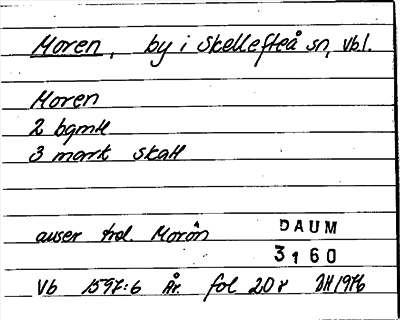 Moren, by i Skellefteå sn, Vbl.
Moren
2 bgmH
3 mark skatt
avser trol. Morön
DAUM
3160
Vb 1597:6 År. fol 20 r DH 1976